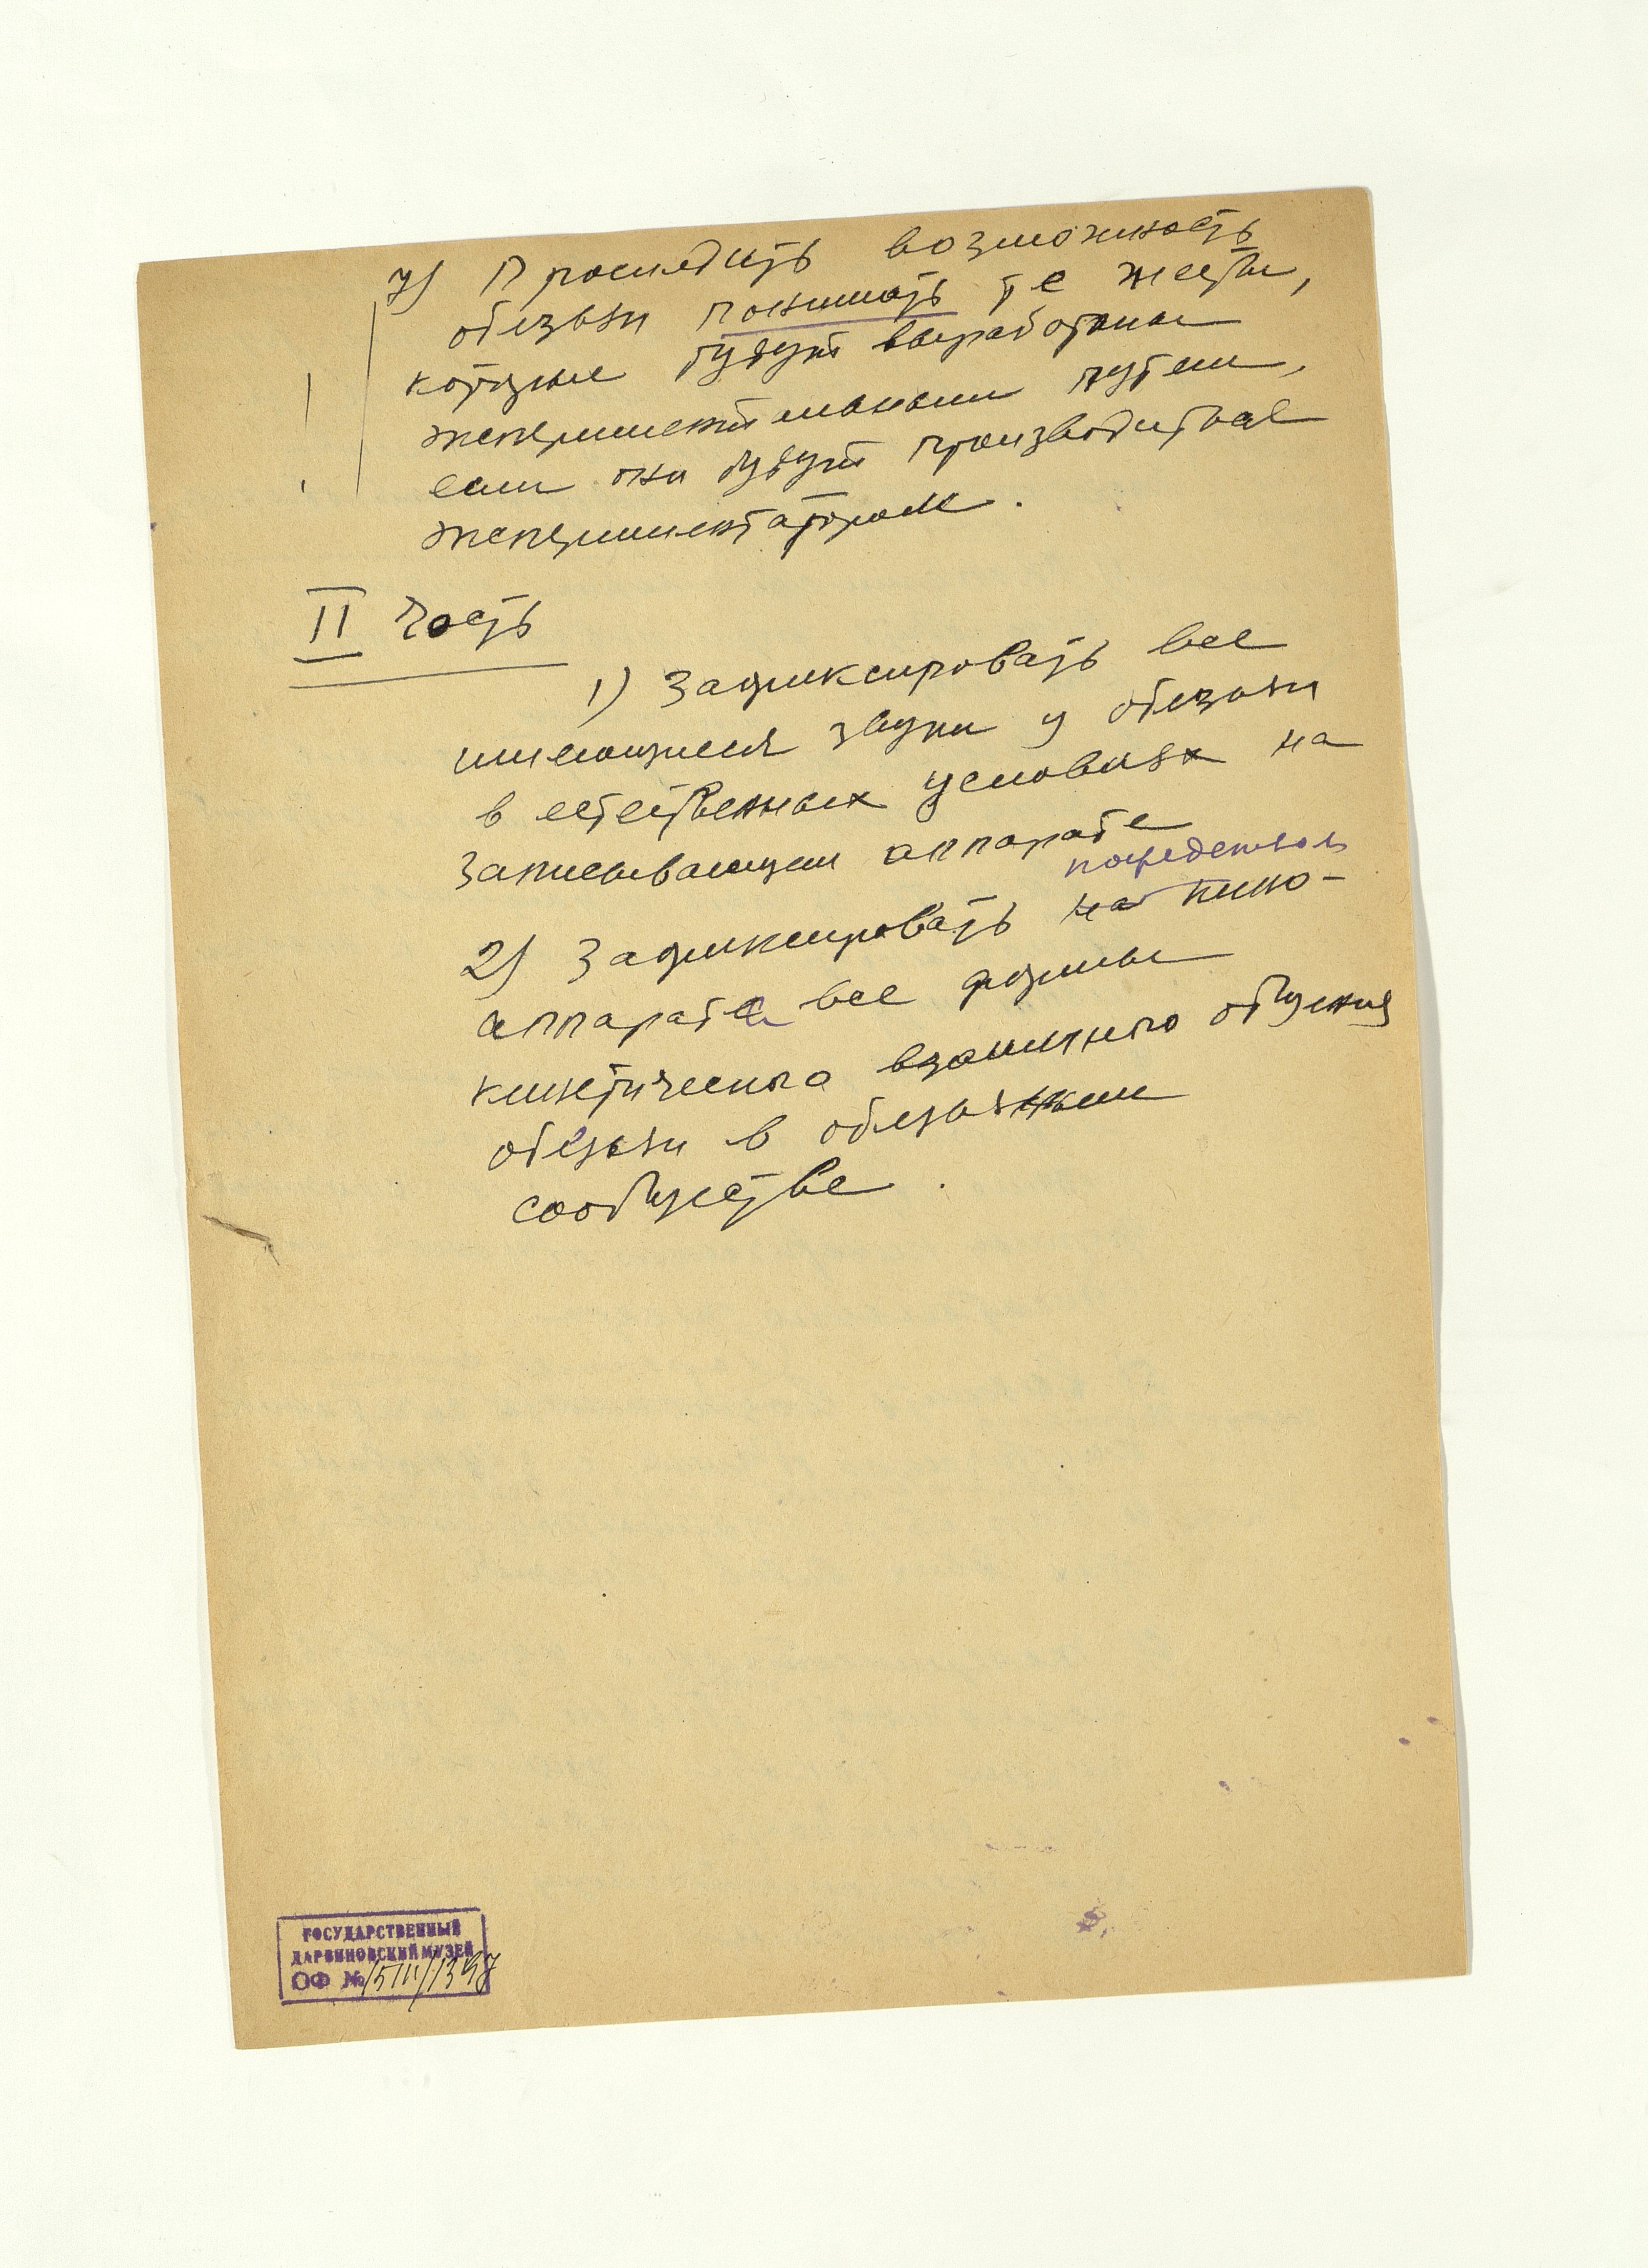 7) Проследить возможность
обезьян понимать те жесты,
которые будут выработаны
экспериментальным путем,
если они будут производиться
экспериментатором.
II Часть
1) Зафиксировать все
имеющиеся звуки у обезьян
в естественных условиях на
записывающем аппарате
посредством
2) Зафиксировать на кино-
аппарата все формы
кинетического взаимного общения
обезьян в обезьяньем
сообществе.
ГОСУДАРСТВЕННЫЙ
ДАРВИНОВСКИЙ МУЗЕЙ
ОФ №